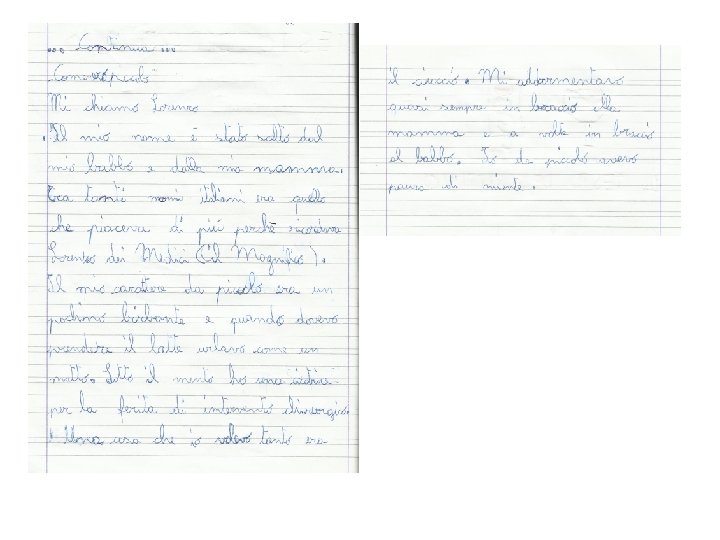 ... Continua ...
Come ero piccolo
Mi chiamo Lorenzo
. Il mio nome è stato scelto dal
mio babbo e dalla mia mamma.
Tra tanti nomi italiani era quello
che piaceva di più perchè ricordava
Lorenzo dei Medici (il Magnifico).
Il mio carattere da piccolo era un
pochino birbante e quando dovevo
prendere il latte urlavo come un
matto. Sotto il mento ho una
per la ferita di intervento chirurgico.
Una cosa che io volevo tanto era
il ciuccio. Mi addormentavo
quasi sempre in braccio alla
mamma e a volte in braccio
al babbo. Io da piccolo avevo
paura di niente.